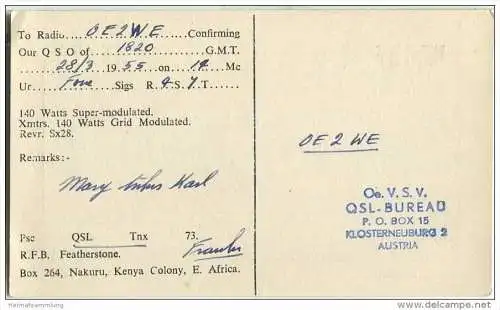 To Radio OE2WE Confirming
Our Q S O of 1820 G.M.T.
28/3 1955 on 14 Mc
Ur Fone Sigs R. 4 S. 7 T.
140 Watts Super-modulated.
Xmtrs. 140 Watts Grid Modulated.
Revr. Sx28.
Remarks:-
Many Karl
Pse QSL Tnx 73.
R.F.B. Featherstone.
Box 264, Nakuru, Kenya Colony, E. Africa.
OE2WE
Oe. V. S. V.
QSL-BUREAU
P. O. BOX 15
KLOSTERNEUBURG 2
AUSTRIA